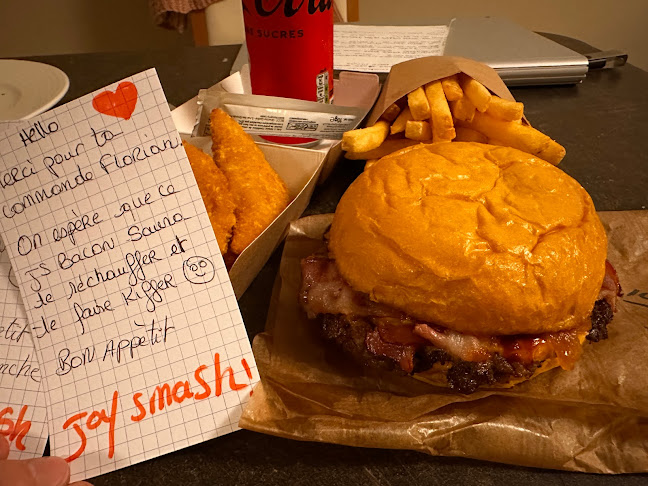 Hello
Merci pour ta
commande Florian.
On espère que ce
JS Bacon Saura
te réchauffer et
te faire Kiffer
BON APPÉTIT
Joy smash!
petit
anche
sh
SUCRES